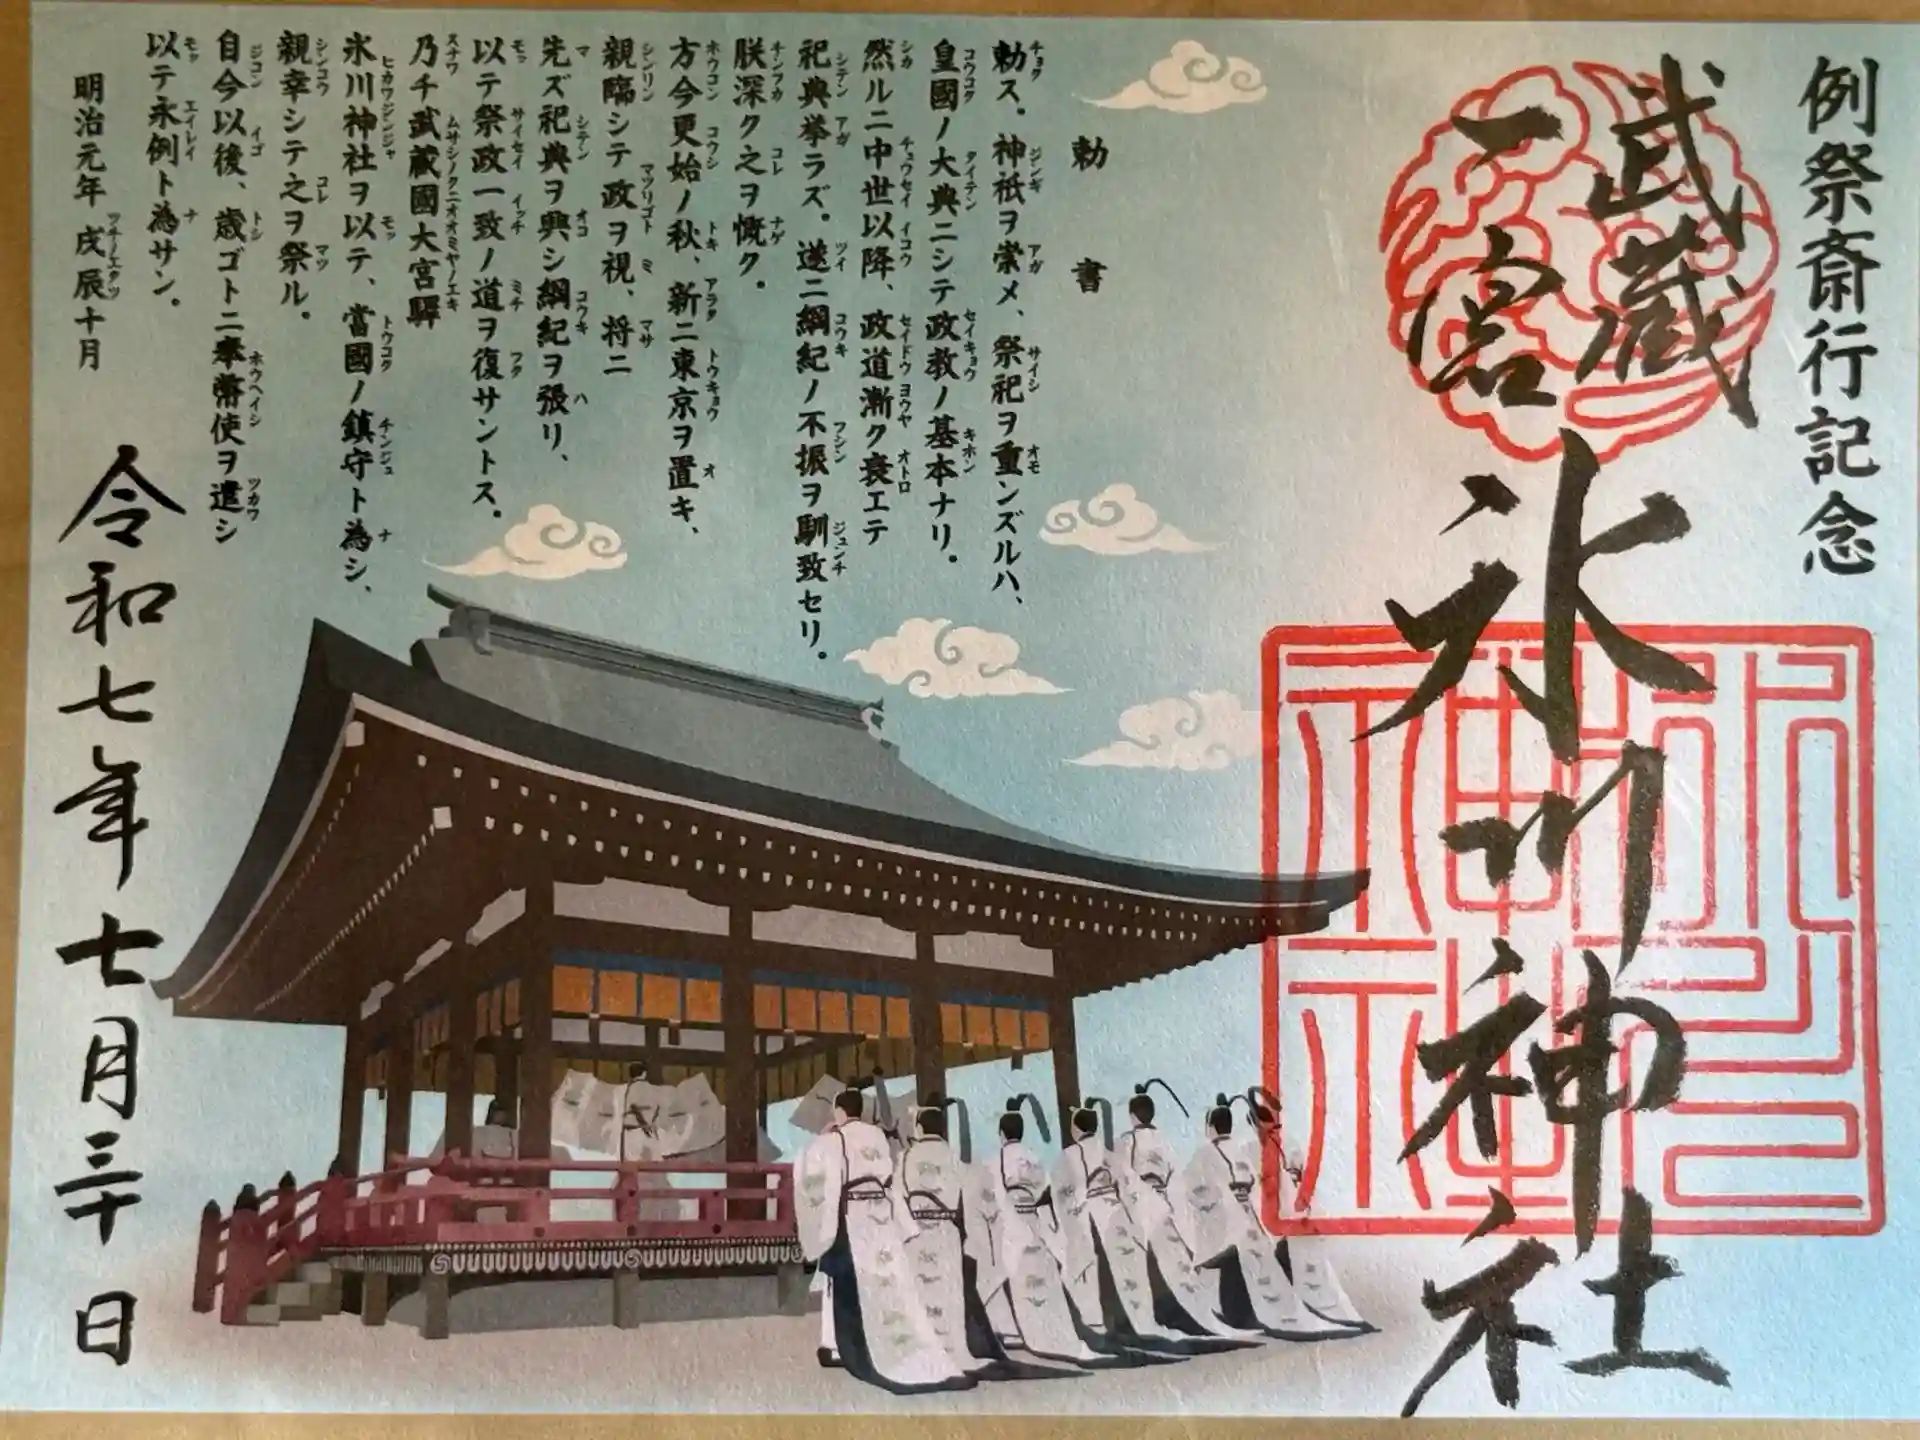 例祭斎行記念
武蔵
一宮
氷川神社
勅書
勅ス。神祇ヲ崇メ、祭祀ヲ重ンズルハ、
皇國ノ大典ニシテ政教ノ基本ナリ。
然ルニ中世以降、政道漸ク衰エテ
祀典挙ラズ。遂ニ綱紀ノ不振ヲ馴致セリ。
朕深ク之ヲ慨ク。
方今更始ノ秋、新ニ東京ヲ置キ、
親臨シテ政ヲ視、将ニ
先ズ祀典ヲ興シ綱紀ヲ張リ、
以テ祭政一致ノ道ヲ復サントス。
乃チ武蔵國大宮驛
氷川神社ヲ以テ、當國ノ鎮守ト為シ、
親幸シテ之ヲ祭ル。
自今以後、歳ゴトニ奉幣使ヲ遣シ
以テ永例ト為サン。
明治元年 戊辰十月
令和七年七月三十日